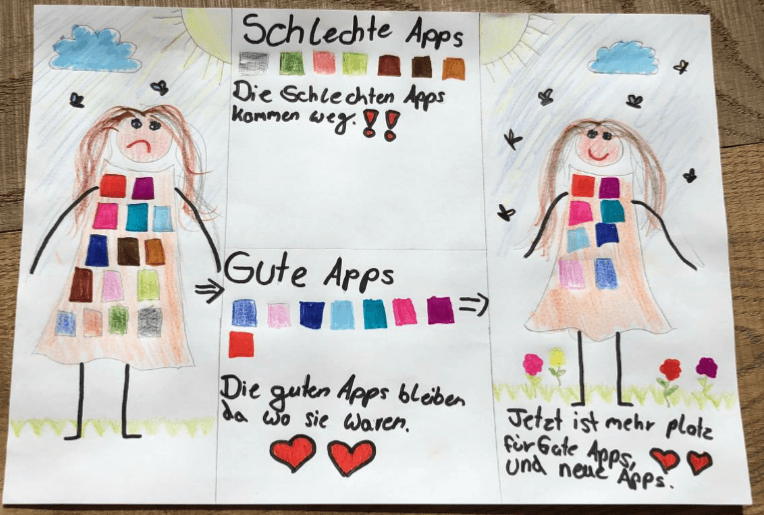 Schlechte Apps
Die Schlechten Apps
kommen weg.!!
Gute Apps
Die guten Apps bleiben
da wo sie waren.
Jetzt ist mehr platz
für Gute Apps,
und neue Apps.